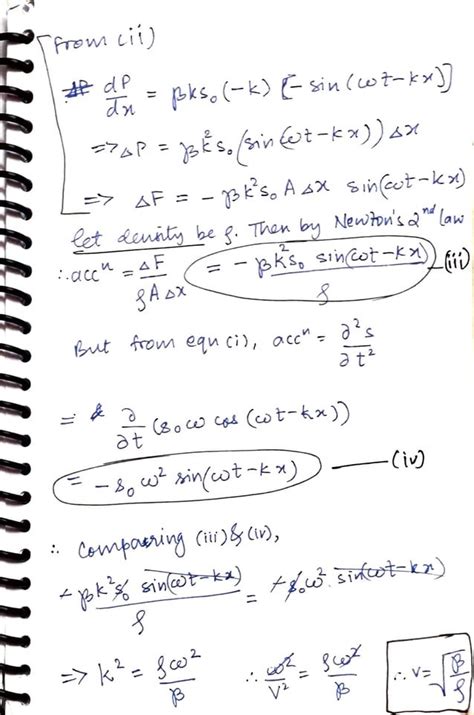 from (ii)
dP/dx = βks₀(-k) [-sin(ωt-kx)]
=> ΔP = βk²s₀(sin(ωt-kx))Δx
=> ΔF = -βk²s₀ A Δx sin(ωt-kx)
let density be ρ. Then by Newton's 2nd law
∴ accⁿ = ΔF/ρAΔx = -βk²s₀ sin(ωt-kx)/ρ (iii)
But from eqn (i), accⁿ = ∂²s/∂t²
= ∂/∂t (s₀ω cos(ωt-kx))
= -s₀ω² sin(ωt-kx) —— (iv)
∴ Comparing (iii) & (iv),
-βk²s₀ sin(ωt-kx)/ρ = -s₀ω² sin(ωt-kx)
=> k² = ρω²/β ∴ ω²/V² = ρω²/β ∴ V = √(β/ρ)